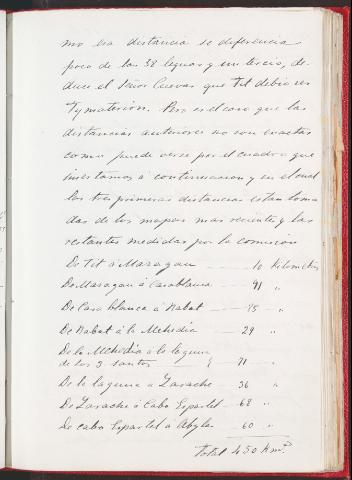 mo esa distancia se diferencia
poco de las 58 leguas y un tercio, de-
duce el Señor Cuevas que Tit debio ser
Tymaterion. Pero es el caso que las
distancias anteriores no son exactas
como puede verse por el cuadro que
insertamos á continuacion y en el cual
las tres primeras distancias estan toma
das de los mapas mas recientes y las
restantes medidas por la comision
De Tit á Mazagan — 10 Kilometros
De Mazagan á Casablanca — 91 "
De Casa blanca á Rabat — 85 "
De Rabat á la Mehedia — 29 "
De la Mehedia á la laguna
de los 3 santos — 71 "
De la laguna a Larache — 36 "
De Larache á Cabo Espartel — 68 "
De cabo Espartel á Abyla — 60 "
Total 450 Km.s